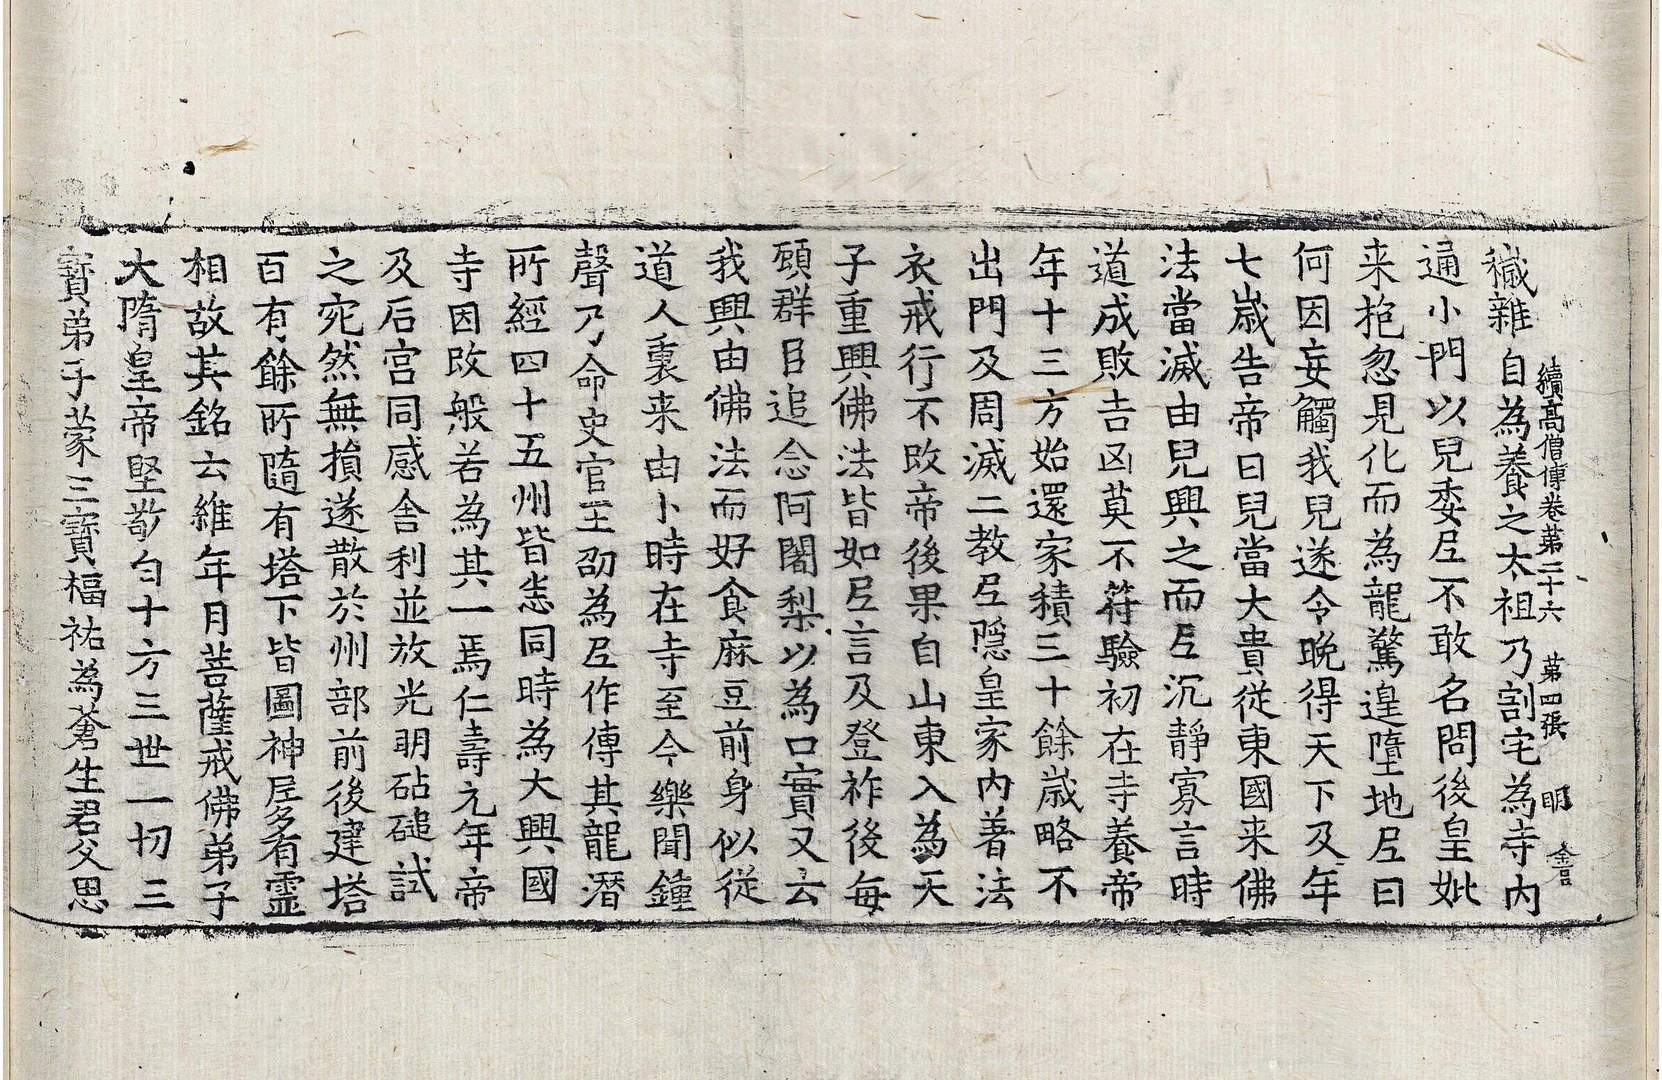 續高僧傳卷第二十六　第四張　明
穢雜自為養之太祖乃割宅為寺內
通小門以兒委尼不敢名問後皇妣
来抱忽見化而為龍驚遑墮地尼曰
何因妄觸我兒遂令晚得天下及年
七歲告帝曰兒當大貴從東國来佛
法當滅由兒興之而尼沉靜寡言時
道成敗吉凶莫不符驗初在寺養帝
年十三方始還家積三十餘歲略不
出門及周滅二教尼隱皇家內著法
衣戒行不改帝後果自山東入為天
子重興佛法皆如尼言及登祚後每
顧群臣追念阿闍梨以為口實又云
我興由佛法而好食麻豆前身似從
道人裏来由小時在寺至今樂聞鐘
聲乃命史官王劭為尼作傳其龍潛
所經四十五州皆悉同時為大興國
寺因改般若為其一焉仁壽元年帝
及后宮同感舍利並放光明砧磓試
之宛然無損遂散於州部前後建塔
百有餘所隨有塔下皆圖神尼多有靈
相故其銘云維年月菩薩戒佛弟子
大隋皇帝堅敬白十方三世一切三
寶弟子蒙三寶福祐為蒼生君父思